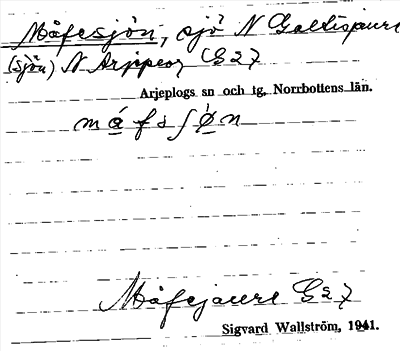 Måfesjön, sjö N Galtispaure
(sjön) N Arjeplog G27
Arjeplogs sn och tg, Norrbottens län.
måfsʃø̀n
Måfejaure G27
Sigvard Wallström, 1941.